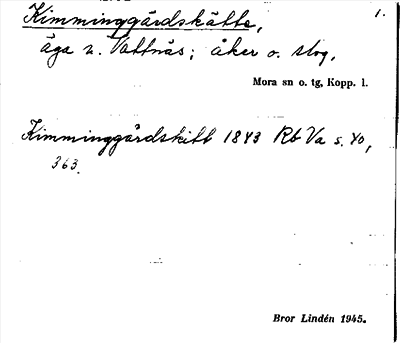 Kimminggårdskätte, 1.
äga n. Vattnäs; åker o. skog.
Mora sn o. tg, Kopp. l.
Kimminggårdskitt 1843 Rb Va s. 40,
363.
Bror Lindén 1945.